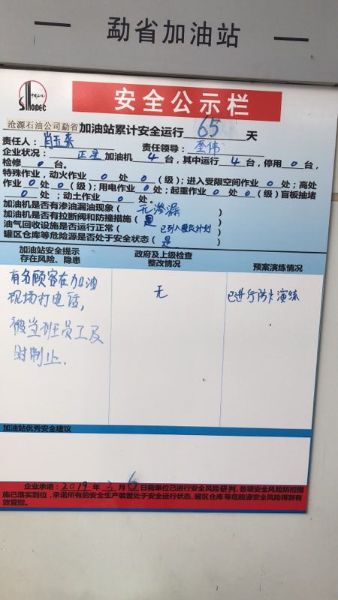 勐省加油站
Sinopec
安全公示栏
沧源石油公司勐省加油站累计安全运行 65 天
责任人: 责任领导:
企业状况: 正常 加油机 4 台, 其中运行 4 台, 停用 0 台,
检修 0 台,
特殊作业, 动火作业 0 处 0 (级); 进入受限空间作业 0 处; 高处
作业 0 处 0 (级); 用电作业 0 处; 起重作业 0 处 0 (级) 盲板抽堵
0 处; 动土作业 0 处
加油机是否有渗泄漏油现象 ( 无渗漏 )
加油机是否有拉断阀和防撞措施 ( 是 )
油气回收设施是否运行正常 ( 已列入 计划
罐区仓库等危险源是否处于安全状态 ( 是 )
加油站安全提示
存在风险、隐患
政府及上级检查
整改情况
预案演练情况
有名顾客在加油
现场打电话,
被当班员工及
时制止.
无
已进行 演练
加油站优秀安全建议
企业承诺: 2019 年 月 6 日我单位已进行安全风险研判, 各项安全风险防控措
施已落实到位, 承诺所有的安全生产装置处于安全运行状态, 罐区仓库等危险源安全风险得到有
效管控.